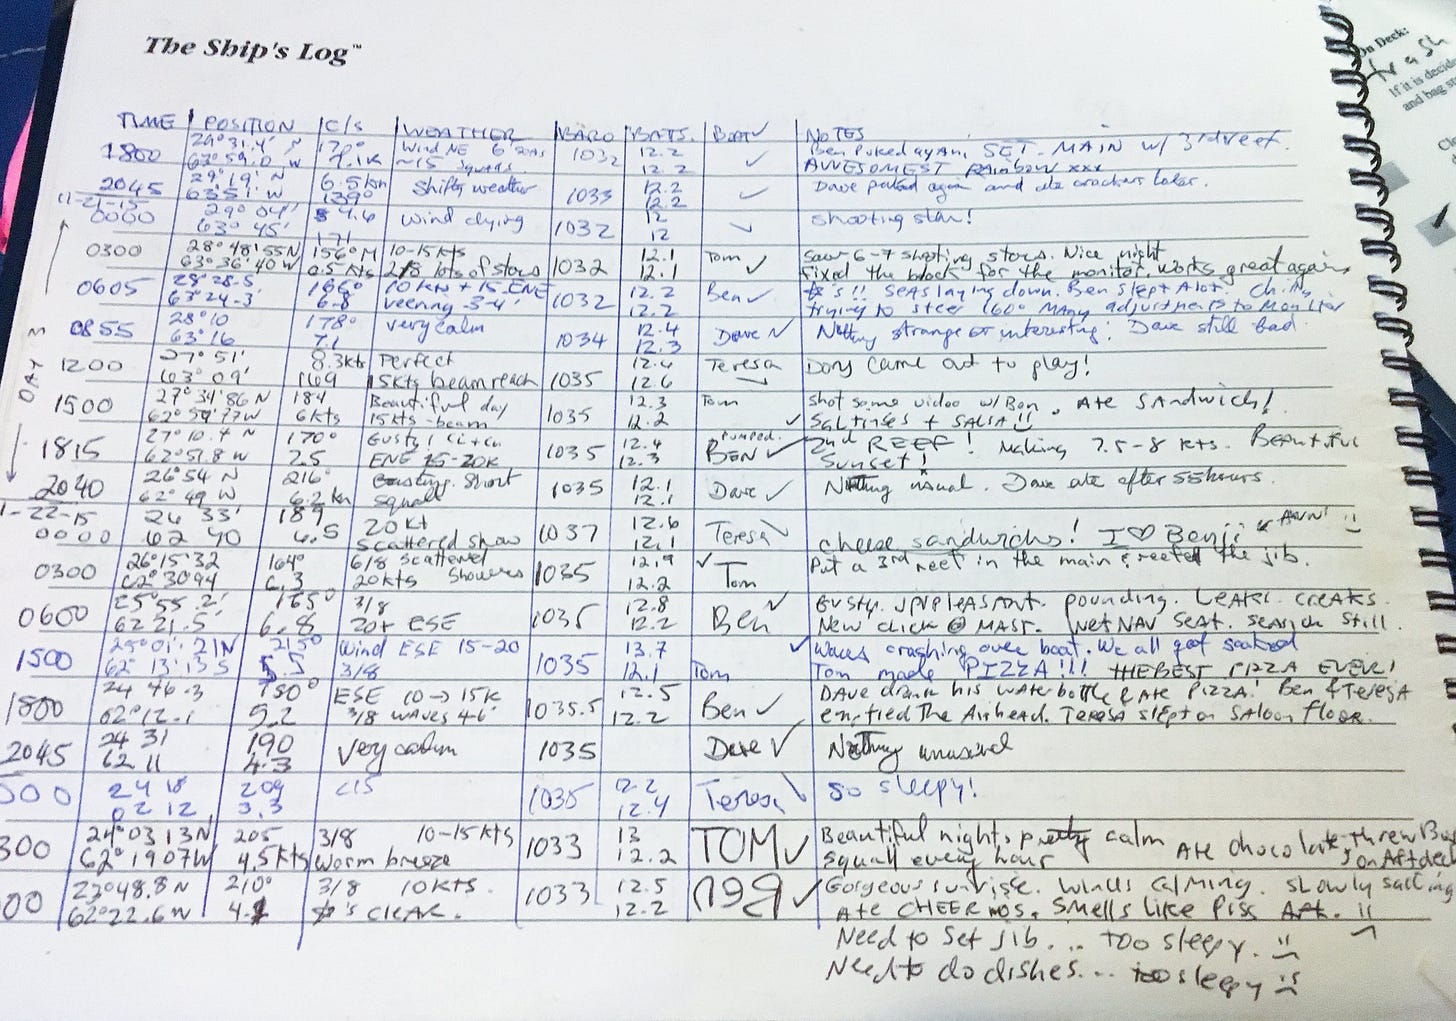 The Ship's Log™
TIME POSITION C/S WEATHER BARO BATS. BOAT✓ NOTES
1800 29°31.4' N 170° Wind NE 6 seas 1032 12.2 ✓ Ben puked again, SET MAIN w/ 3rd reef.
62°59.0 W 7.1K ~15 squalls. 12.2 AWESOMEST RAINBOW xxx
2045 29°19' N 6.5kn Shifty weather 1033 12.2 ✓ Dave puked again and ate crackers later.
63°51' W 139° 12.2
11-21-15
0000 29° 04' 4.6 wind dying 1032 12 ✓ shooting star!
63° 45' 171 12
0300 28°48'55N 156°M 10-15kts 1032 12.1 Tom ✓ Saw 6-7 shooting stars. Nice night
63°36'40W 0.5 kts 2/8 lots of stars 12.1 Fixed the block for the monitor, works great again
0605 28°28.5 166° 10 KN + 15 ENE 1032 12.2 Ben ✓ 's!! SEAS laying down. Ben slept Alot. Chilly
63°24.3' 6.8 veering 3-4' 12.2 trying to steer 160° MANY adjustments to Monitor
DAY 3
0855 28°10 178° very calm 1034 12.4 Dave N Nothing strange or interesting. Dave still bad.
63°16 7.1 12.3
1200 27° 51' 8.3kts Perfect 1035 12.6 Teresa ✓ Dory came out to play!
63° 09' 169 15kts beam reach 12.6
1500 27°34'86 N 184 Beautiful day 1035 12.3 Tom ✓ Shot some video w/ Ben. Ate SANDWICH!
62°59'77W 6kts 15kts-beam 12.2 SALTINES + SALSA!!
1815 27°10.4 N 170° Gusty! 1035 12.4 pumped. BEN ✓ 2nd REEF! Making 7.5-8 kts. Beautiful
62°51.8 W 7.5 ENE 15-20K 12.3 Sunset!
2040 26°54 N 216° short 1035 12.1 Dave ✓ Nothing usual. Dave ate after 55 hours.
62° 49 W 6.2 kn squall 12.1
-22-15
0000 26 33' 189 20 kt 1037 12.6 Teresa ✓ cheese sandwichs! I ♡ Benji AWW!
62 40 6.5 Scattered show 12.1
0300 26°15'32 164° 6/8 scattered 1035 12.9 ✓ Tom Put a 3rd reef in the main & reefed the jib.
62°3094 6.3 20kts showers 12.2
0600 25°55.2' 165° 3/8 1035 12.8 Ben ✓ Gusty. UNPLEASANT. pounding. LEAKS. CREAKS.
62 21.5' 6.8 20+ ESE 12.2 New click @ MAST. Wet NAV SEAT. SEASICK Still.
1500 25°01'.21N 215° Wind ESE 15-20 1035 13.7 Tom ✓ Waves crashing over boat. We all got soaked
62° 13'13 5.5 3/8 12.1 Tom made PIZZA!!! THE BEST PIZZA EVER!
1800 24 46.3 180° ESE 10→15K 1035.5 12.5 Ben ✓ DAVE drank his water bottle & ate PIZZA! Ben & TeresA
62°12.1 5.2 3/8 waves 4-6' 12.2 emptied The Airhead. Teresa slept on Saloon floor.
2045 24 31 190 Very calm 1035 Dave ✓ Nothing unusual
62 11 4.3
000 24 18 209 <15 1035 12.2 Teresa ✓ so sleepy!
62 12 3.3 12.4
300 24°03 13N 205 3/8 10-15 kts 1033 13 TOM ✓ Beautiful night, pretty calm Ate chocolate, threw
62°1907W 4.5kts Warm breeze 12.2 Squall every hour on Aft deck
00 23°48.8 N 210° 3/8 10 KTS. 1033 12.5 ✓ Gorgeous sunrise. Winds calming. Slowly sailing
62°22.6 W 4. 's CLEAR. 12.2 Ate CHEERIOS. Smells like Piss Aft.
Need to set jib... too sleepy.
Need to do dishes... too sleepy
On Deck:
trash
If it is decid
and bag s